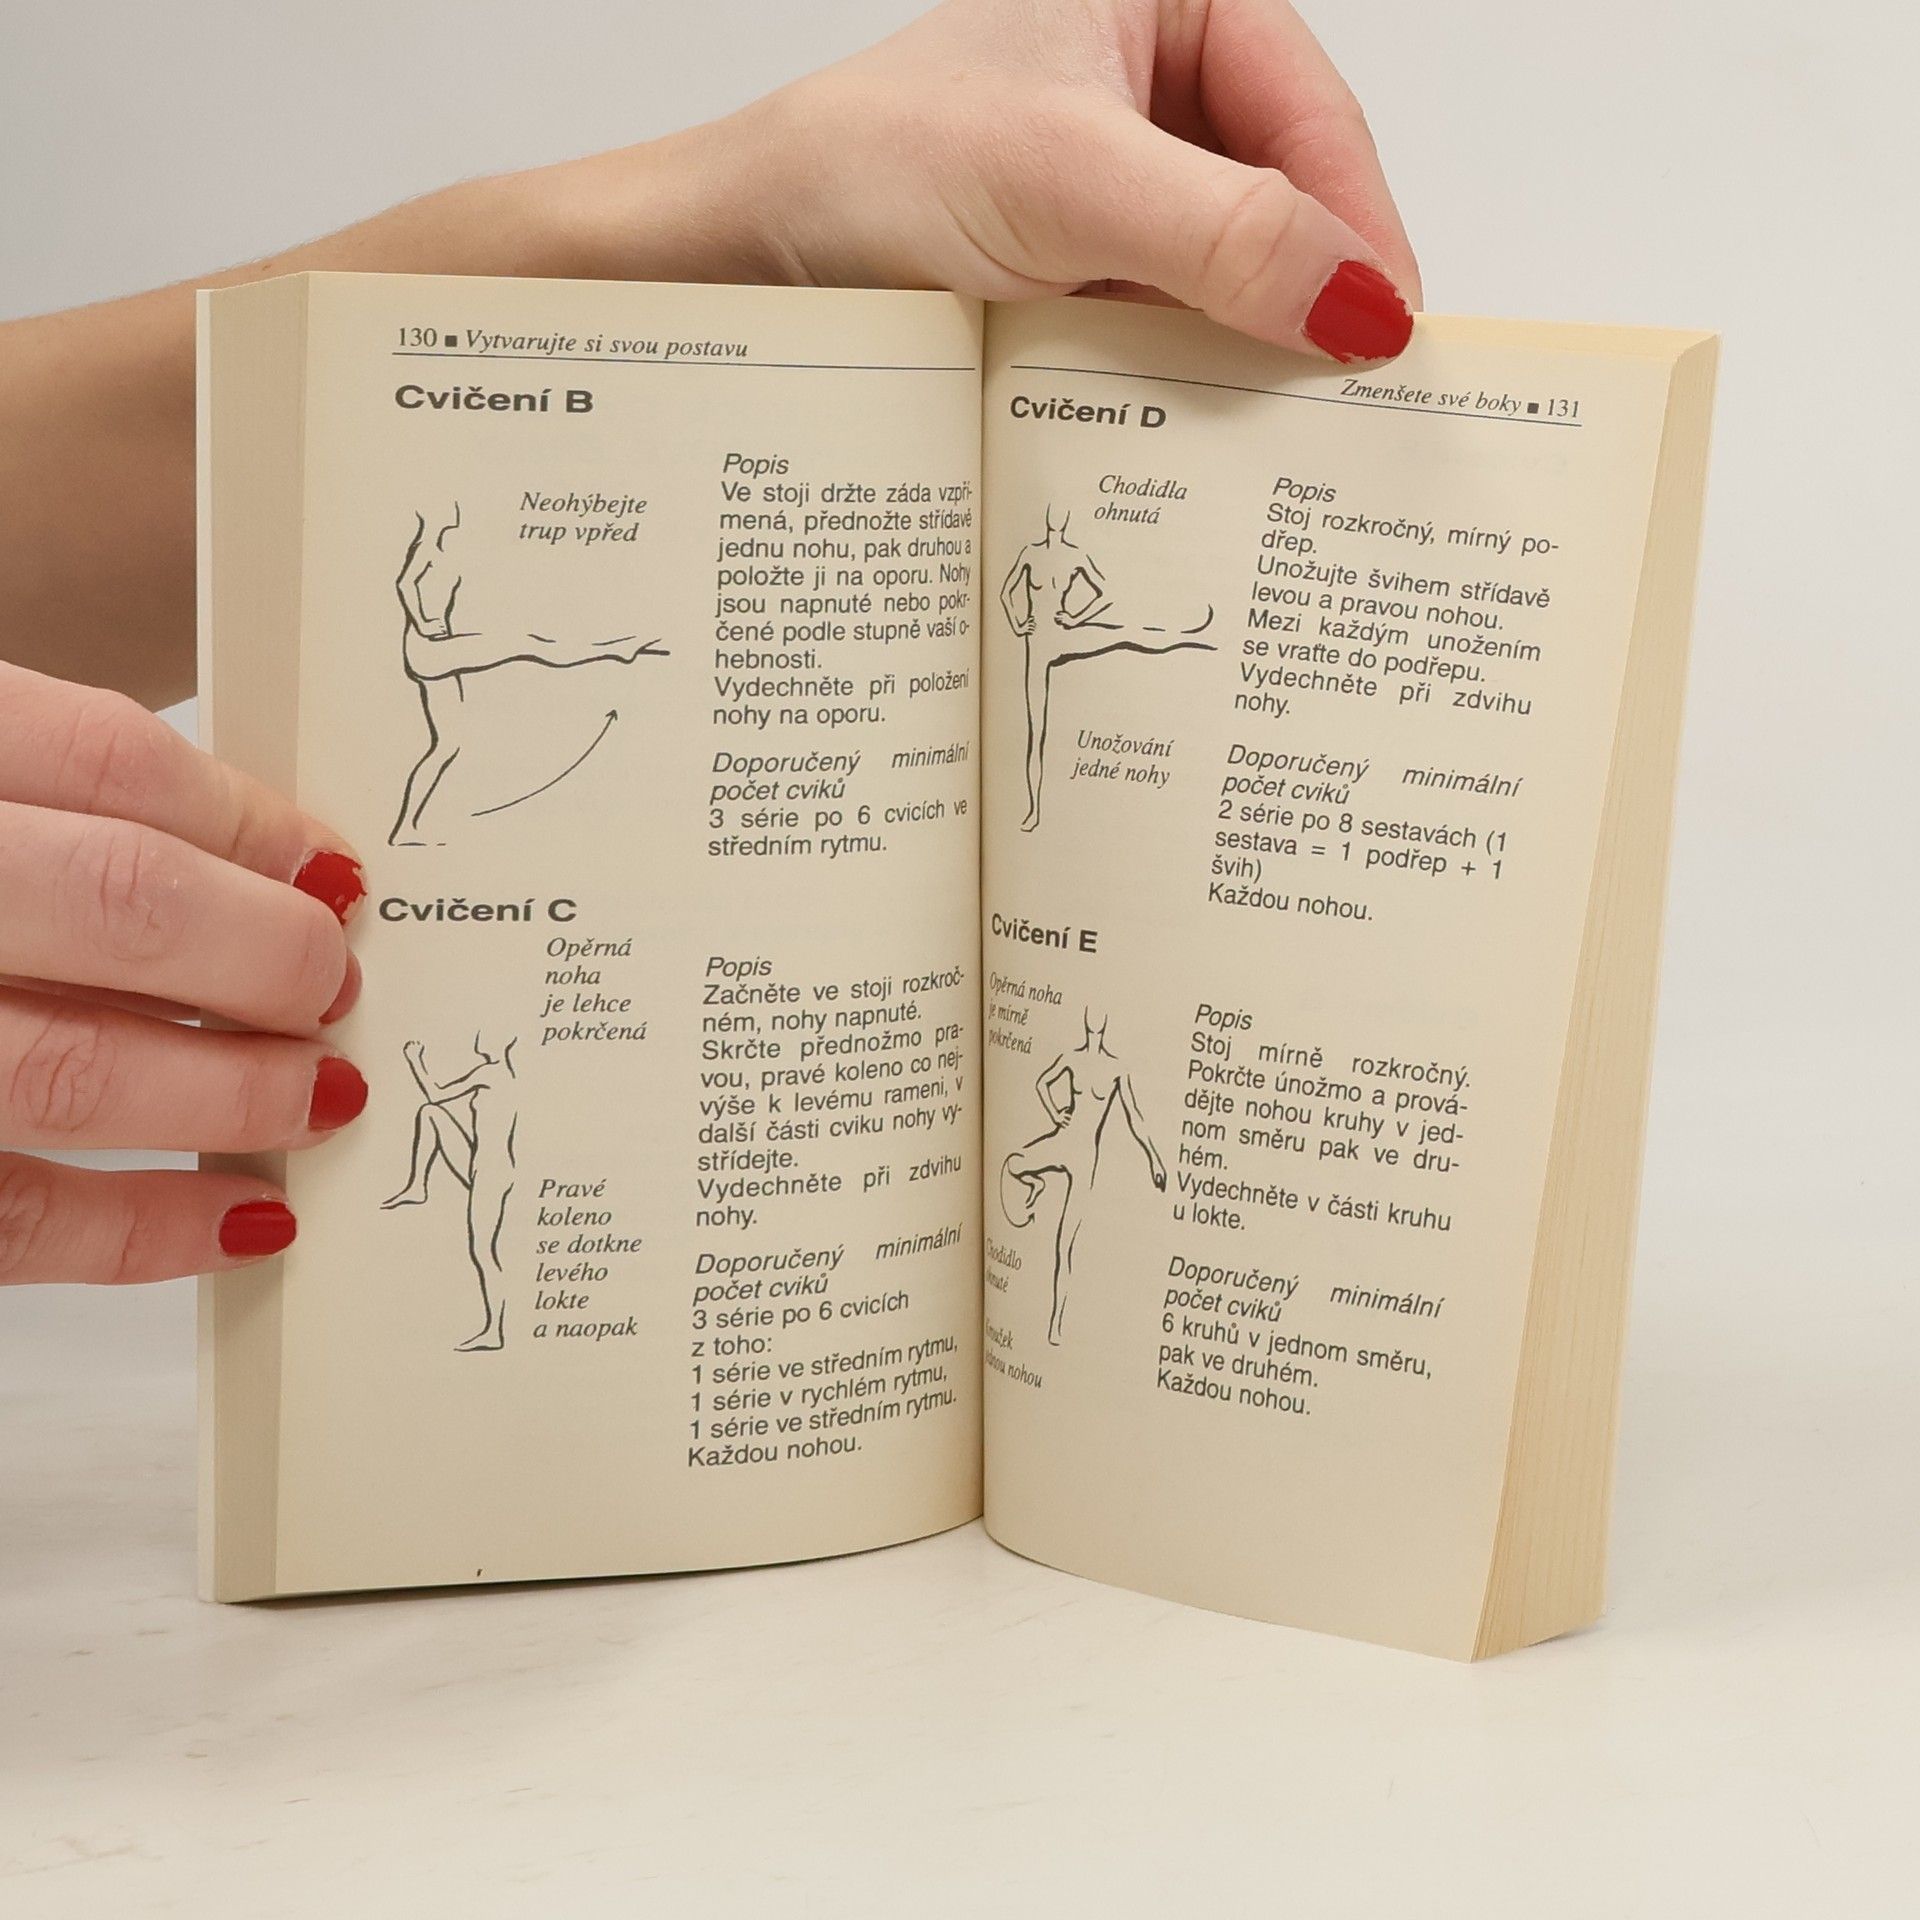 130 ■ Vytvarujte si svou postavu
Cvičení B
Neohýbejte
trup vpřed
Popis
Ve stoji držte záda vzpří-
mená, přednožte střídavě
jednu nohu, pak druhou a
položte ji na oporu. Nohy
jsou napnuté nebo pokr-
čené podle stupně vaší o-
hebnosti.
Vydechněte při položení
nohy na oporu.
Doporučený minimální
počet cviků
3 série po 6 cvicích ve
středním rytmu.
Cvičení C
Opěrná
noha
je lehce
pokrčená
Pravé
koleno
se dotkne
levého
lokte
a naopak
Popis
Začněte ve stoji rozkroč-
ném, nohy napnuté.
Skrčte přednožmo pra-
vou, pravé koleno co nej-
výše k levému rameni, v
další části cviku nohy vy-
střídejte.
Vydechněte při zdvihu
nohy.
Doporučený minimální
počet cviků
3 série po 6 cvicích
z toho:
1 série ve středním rytmu,
1 série v rychlém rytmu,
1 série ve středním rytmu.
Každou nohou.
Zmenšete své boky ■ 131
Cvičení D
Chodidla
ohnutá
Unožování
jedné nohy
Popis
Stoj rozkročný, mírný po-
dřep.
Unožujte švihem střídavě
levou a pravou nohou.
Mezi každým unožením
se vraťte do podřepu.
Vydechněte při zdvihu
nohy.
Doporučený minimální
počet cviků
2 série po 8 sestavách (1
sestava = 1 podřep + 1
švih)
Každou nohou.
Cvičení E
Opěrná noha
je mírně
pokrčená
Chodidlo
nohou
Popis
Stoj mírně rozkročný.
Pokrčte únožmo a prová-
dějte nohou kruhy v jed-
nom směru pak ve dru-
hém.
Vydechněte v části kruhu
u lokte.
Doporučený minimální
počet cviků
6 kruhů v jednom směru,
pak ve druhém.
Každou nohou.